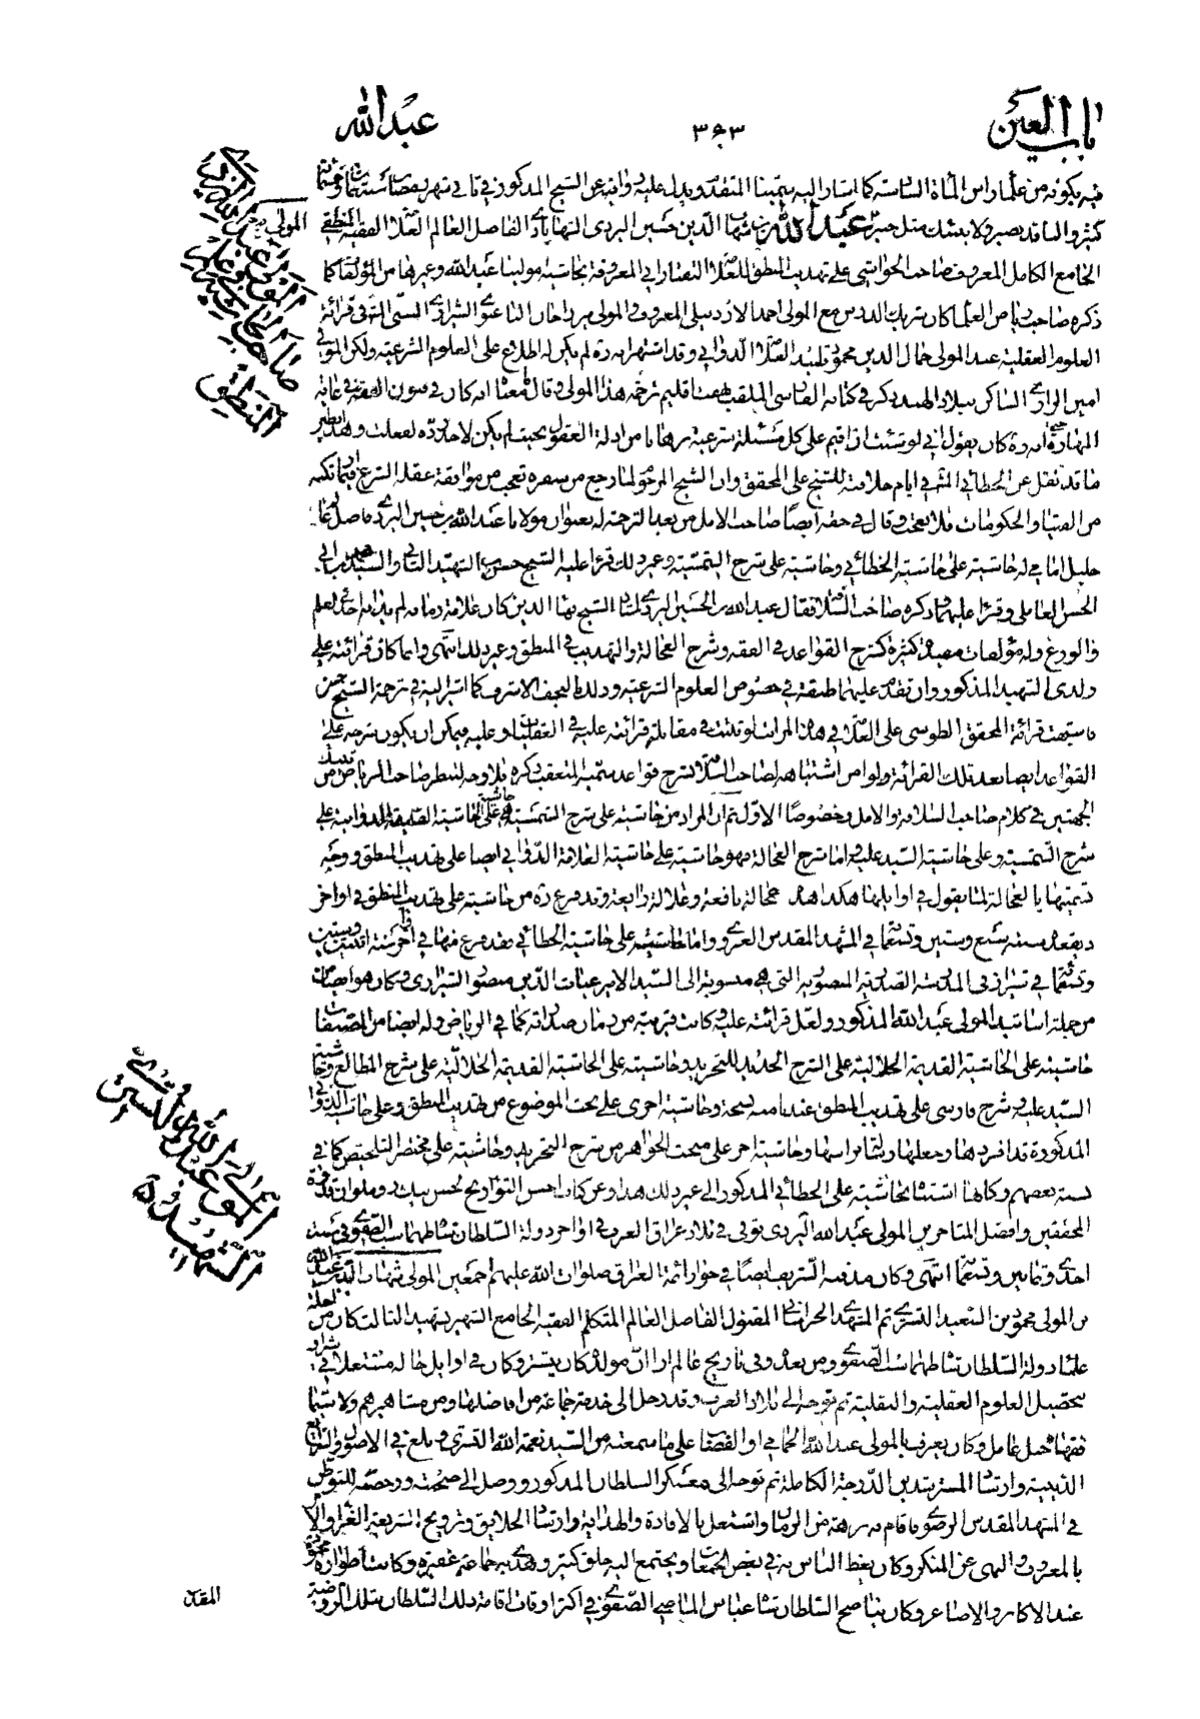 باب العين
٣٦٣
عبد الله
فيه بكونه من علماء رأس المأة السادسة كما اشار اليه سمينا المتقدم ويدل عليه روايته عن الشيخ المذكور في ثاني شهر رمضان سنة ثمان وخمسمائة
كثير والناقد بصير ولا ينبئك مثل خبير عبد الله بن شهاب الدين حسين اليزدي الشهابادي الفاضل العالم العلامة الفقيه المنطقي
المولى
الجامع الكامل المعروف صاحب الحواشي على تهذيب المنطق للعلامة التفتازاني المعروفة بحاشية مولينا عبد الله وغيرها من المؤلفات كما
ذكره صاحب رياض العلماء كان شريك الدرس مع المولى احمد الاردبيلي المعروف والمولى ميرزا جان الباغنوي الشيرازي السني المتوفى قرائة
العلوم العقلية عند المولى جمال الدين محمود تلميذ العلامة الدواني وقد اشتهر انه ره لم يكن له اطلاع على العلوم الشرعية ولكن المولى
امين الرازي الساكن ببلاد الهند ذكر في كتابه الفارسي الملقب بهفت اقليم ترجمة هذا المولى وقال ما معناه انه كان في فنون الفقه في غاية
المهارة انه ره كان يقول اني لو شئت ان اقيم على كل مسئلة شرعية برهانا من ادلة العقول بحيث لم يكن لاحد رده لفعلت وهذا نظير
ما قد نقل عن الخطائي ايام خلافته للشيخ على المحقق وان الشيخ المرحوم لما رجع من سفره تعجب من موافقة عقله الشرع فيما حكمه
من الفتيا والحكومات فلا تعجب وقال في حقه ايضا صاحب الامل من بعد الترجمة له بعنوان مولانا عبد الله بن حسين اليزدي فاضل عالم
جليل امامي له حاشية على حاشية الخطائي وحاشية على شرح الشمسية وغير ذلك قرأ عليه الشيخ حسن بن الشهيد الثاني والسيد محمد بن ابي
الحسن العاملي وقرأ عليهما وذكره صاحب السلافة فقال عبد الله بن الحسين اليزدي استاد الشيخ بهاء الدين كان علامة زمانه لم يدانه احد في العلم
والورع وله مؤلفات مفيدة كثيرة كشرح القواعد في الفقه وشرح العجالة والتهذيب في المنطق وغير ذلك انتهى وانما كان قرائته على
ولدي الشهيد المذكور وان تقدم عليهما طبقة في خصوص العلوم الشرعية وذلك بالنجف الاشرف كما اشير اليه في ترجمة الشيخ حسن
فاشبهت قرائة المحقق الطوسي على العلامة في هذا المراتب لو تثبت في مقابلة قرائته عليه في العقليات وعليه فيمكن ان يكون شرحه على
القواعد ايضا بعد تلك القرائة ولو امن اشتباه لصاحب السلافة بشرح قواعد سميه المتعقب ذكره فلا وجه لتنظر صاحب الرياض من
الجهتين في كلام صاحب السلافة والامل وخصوصا الاول ثم ان المراد من حاشيته على شرح الشمسية هي حاشيته على الحاشية القديمة الدوانية على
شرح الشمسية وعلى حاشية السيد عليه واما شرح العجالة فهو حاشيته على حاشية العلامة الدواني ايضا على تهذيب المنطق ووجه
تسميتها بالعجالة لما يقول في اوايلها هكذا هذه عجالة نافعة وعلالة رابعة وقد فرغ ره من حاشيته على تهذيب المنطق في اواخر
ذيقعدة سنة سبع وستين وتسعمائة في المشهد المقدس الغروي واما حاشيته على حاشية الخطائي فقد فرغ منها في اواخر سنة اثنتين وستين
وتسعمائة في شيراز في المدرسة الصدرية المنصورية التي هي منسوبة الى السيد الامير غياث الدين منصور الشيرازي وكان هو ايضا
من جملة اساتيد المولى عبد الله المذكور ولعل قرائته عليه كانت قريبة من زمان صدارته كما في الرياض وله ايضا من المصنفات
حاشيته على الحاشية القديمة الجلالية على الشرح الجديد للتجريد وحاشيته على الحاشية القديمة الجلالية على شرح المطالع وحاشية
السيد عليه وشرح فارسي على تهذيب المنطق عندنا منه نسخة وحاشية اخرى على بحث الموضوع من تهذيب المنطق وعلى حاشية الدواني
المذكورة قد افردها وجعلها رسالة براسها وحاشية اخر على مبحث الجواهر من شرح التجريد وحاشية على مختصر التلخيص كما في
نسبه بعضهم وكانها اشتبه بحاشيته على الخطائي المذكور الى غير ذلك هذا وعن كتاب احسن التواريخ لحسن بيك روملو ان قدوة
المحققين وافضل المتاخرين المولى عبد الله اليزدي توفى في بلاد عراق العرب في اواخر دولة السلطان شاه طهماسب الصفوي في سنة
احدى وثمانين وتسعمائة انتهى وكان مدفنه الشريف ايضا في جوار ائمة العراق صلوات الله عليهم اجمعين المولى شهاب الدين عبد الله
بن المولى محمود بن السعيد التستري ثم المشهدي الخراساني المقتول الفاضل العالم المتكلم الفقيه الجامع الشهير بشهيد الثالث كان من اجلة
علماء دولة السلطان شاه طهماسب الصفوي ومن بعده وفي تاريخ عالم ارا ان مولده كان بتستر وكان في اوايل حاله مشتغلا في شيراز
بتحصيل العلوم العقلية والنقلية ثم توجه الى بلاد العرب وقد دخل الى خدمة جماعة من افاضلها ومن مشاهيرهم ولا سيما
فقهاء جبل عامل وكان يعرف بالمولى عبد الله
الدينية وارشاد المسترشدين الدرجة الكاملة ثم توجه الى معسكر السلطان المذكور ووصل الى صحبته ورخصه للتوطن
في المشهد المقدس الرضوي فاقام به برهة من الزمان واشتغل بالافادة والهداية وارشاد الخلايق وترويج الشريعة الغراء والامر
بالمعروف والنهي عن المنكر وكان يعظ الناس به في بعض الجمعات ويجتمع اليه خلق كثير ويهتدي به جماعة غفيرة وكانت اطواره محمودة
عند الاكابر والاصاغر وكان يناصح السلطان شاه عباس الماضي الصفوي في اكثر اوقات اقامة ذلك السلطان بتلك الروضة
المقدسة
المولى عبد الله اليزدي
صاحب الحاشية على
المنطق
المولى عبد الله التستري
الشهيد ره